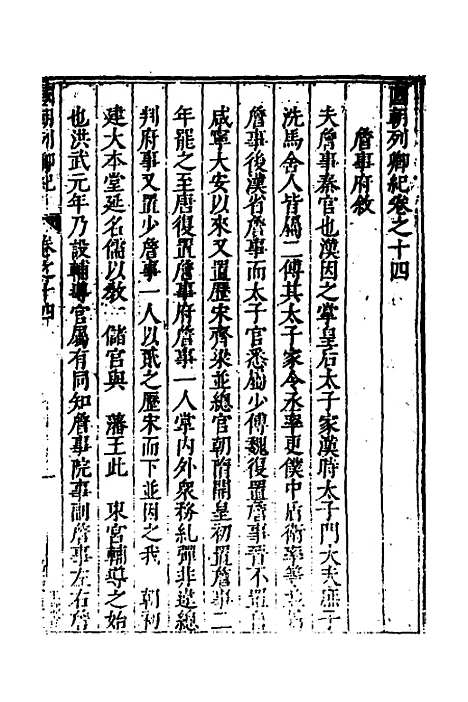 國朝列卿紀卷之十四
詹事府敘
夫詹事秦官也漢因之掌皇后太子家漢時太子門大夫庶子
洗馬舍人皆屬二傅其太子家令丞率更僕中盾衛率等
詹事後漢省詹事而太子官悉屬少傅魏復置詹事晉不置
咸寧大安以來又置歷宋齊梁並總官朝隋開皇初置詹事二
年罷之至唐復置詹事府詹事一人掌內外衆務糺彈非違總
判府事又置少詹事一人以貳之歷宋而下並因之我 朝初
建大本堂延名儒以教 儲官與 藩王此 東宮輔導之始
也洪武元年乃設輔導官屬有同知詹事院事副詹事左右詹
國朝列卿紀 卷之十四 一